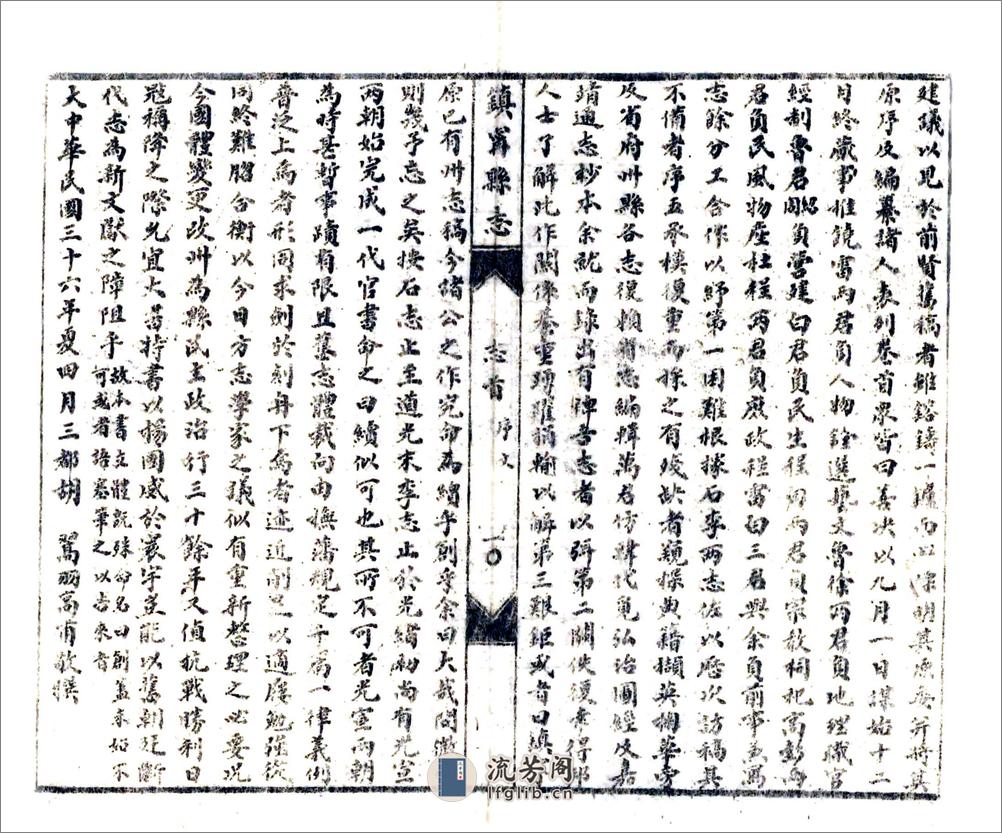 建議以見於前賢舊稿者雖鎔鑄一爐而必深明其原委并將其
原序及編纂諸人表列卷首眾皆曰善决以九月一日謀始十二
月終蕆事推饒雷兩君負人物餘選藝文魯徐兩君負地理職官
經制魯君聯負營建白君負民生程 兩君負宗教祠祀高彭兩
君負民風物產杜程两君負庶政程雷白三君與余負前事兼爲
志餘分工合作以紓第一困難根據石李兩志佐以歷次訪稿其
不備者序五承模復重而採之有殘缺者窺採典籍擷英掬華旁
及省府州縣各志復賴省志編輯萬君仿 代覓弘治圖經及嘉
靖通志抄本余就而錄出有裨吾志者以弭第二闕佚復幸得
人士了解此作關係綦重踴躍捐輸以解第三難鉅或者曰鎮寧
鎮寧縣志
志首
序文
一〇
原已有州志稿今諸公之作究命爲續乎創乎余曰大哉問
則幾乎忘之矣按石志止至道光末李志止於光緒初尚有光宣
两朝始完成一代官書命之曰續似可也其所不可者光宣兩朝
為時甚暫事蹟有限且舊志體裁向由撫藩規定千篇一律義例
普泛上焉者形同求劍於刻舟下焉者迹近削足以適屨勉强從
同終難脗合衡以今日方志學家之議似有重新整理之必要况
今國體變更改州爲縣民主政治行三十餘年又值抗戰勝利日
寇稱降之際尤宜大書特書以揚國威於寰宇並能以舊朝廷斷
代志爲新文獻之障阻乎故本書立體既殊命名曰創蓋未始不
可或者語塞筆之以告來者
大中華民國三十六年夏四月三都胡 翯羽高甫敬撰
流芳阁
lfglib.cn